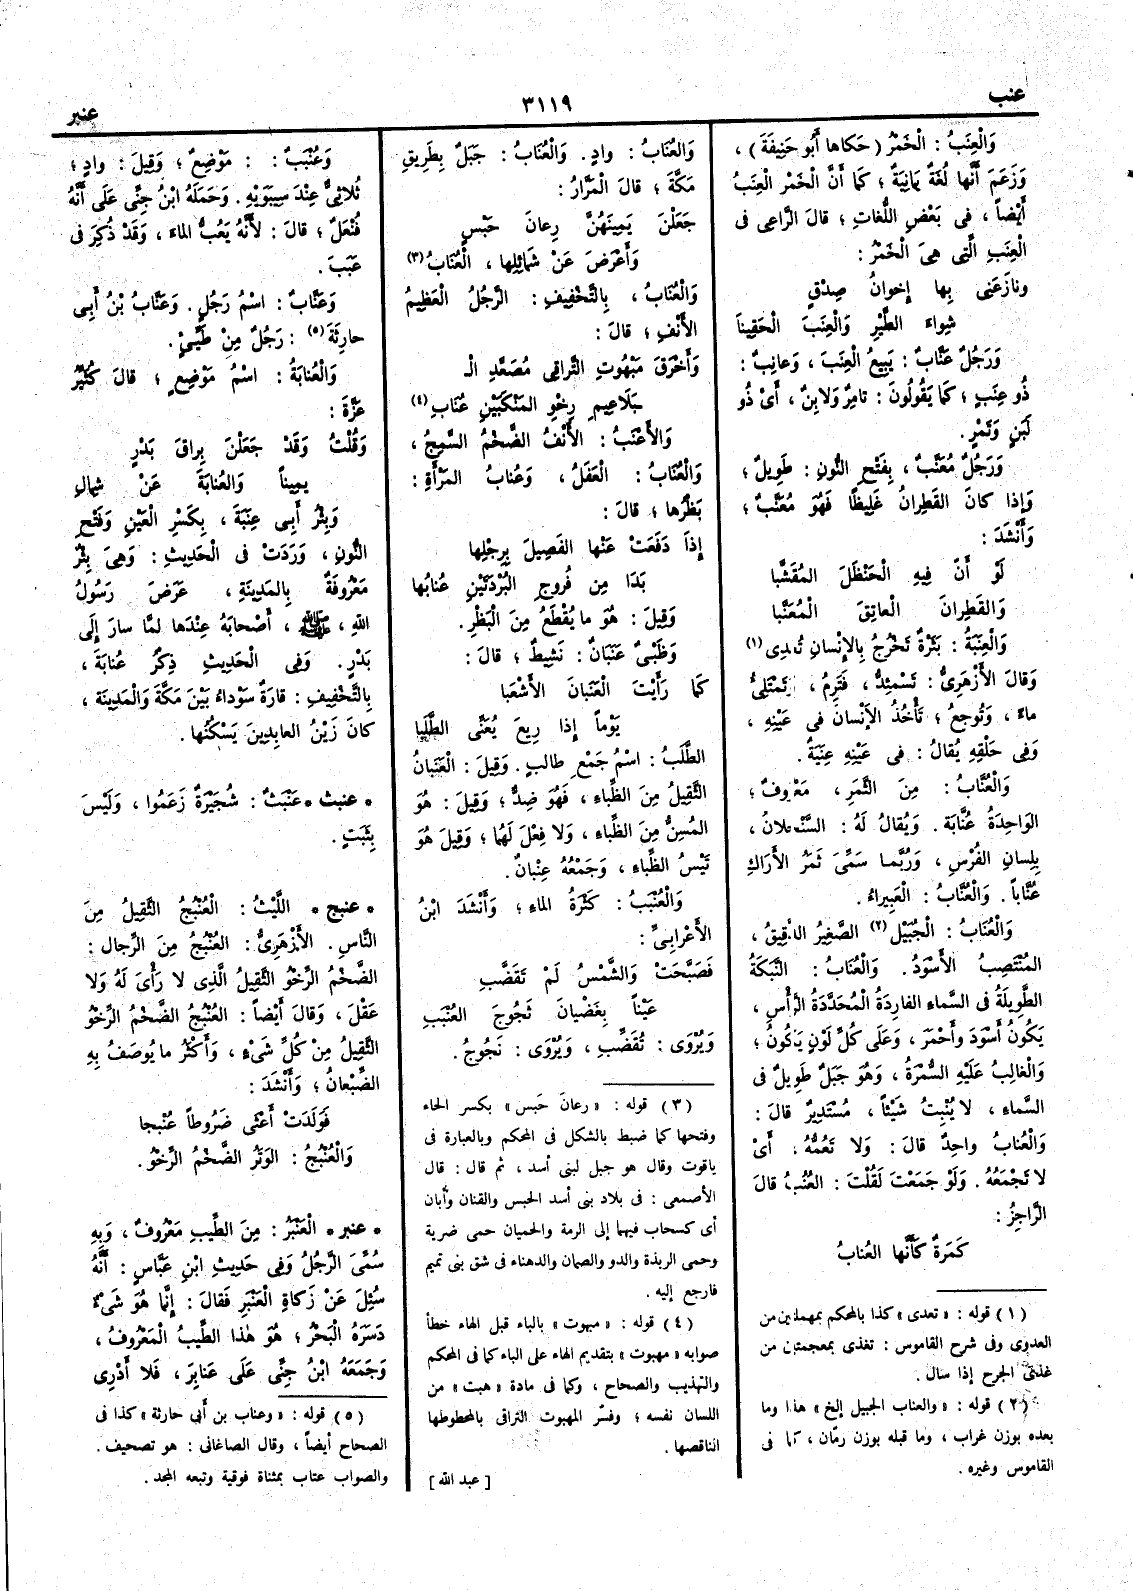 عنب
٣١١٩
عنبر
وَالْعِنَبُ : الْخَمْرُ ( حَكاها أَبُو حَنِيفَةَ ) ،
وَزَعَمَ أَنَّها لُغَةٌ يَمانِيَةٌ ؛ كَما أَنَّ الْخَمْرَ الْعِنَبُ
أَيْضاً ، فِى بَعْضِ اللُّغاتِ ؛ قالَ الرَّاعِى فى
الْعِنَبِ الَّتِى هِىَ الْخَمْرُ :
ونازَعَنِى بِها إخوانُ صِدْقٍ
شِواءَ الطَّيْرِ وَالْعِنَبَ الْحَقِينا
وَرَجُلٌ عَنَّابٌ : يَبِيعُ الْعِنَبَ ، وَعانِبٌ :
ذُو عِنَبٍ ؛ كَما يَقُولُونَ : تامِرٌ وَلابِنٌ ، أَىْ ذُو
لَبَنٍ وَتَمْرٍ .
وَرَجُلٌ مُعَنَّبٌ ، بِفَتْحِ النُّونِ : طَوِيلٌ ؛
وَإذا كانَ القَطِرانُ غَلِيظًا فَهُوَ مُعَنَّبٌ ؛
وَأَنْشَدَ :
لَوْ أَنَّ فِيهِ الْحَنْظَلَ المُقَشَّبا
وَالقَطِرانَ الْعاتِقَ الْمُعَنَّبا
وَالْعِنَبَةُ : بَثْرَةٌ تَخْرُجُ بِالإِنْسانِ تُعْدِى (١)
وَقالَ الأَزْهَرِىُّ : تَسْمَئِدُّ ، فَتَرِمُ ، وَتَمْتَلِئُ
ماءً ، وَتُوجِعُ ؛ تَأْخُذُ الإِنْسانَ فى عَيْنِهِ ،
وَفِى حَلْقِهِ يُقالُ : فى عَيْنِهِ عِنَبَةٌ .
وَالْعُنَّابُ : مِنَ الثَّمَرِ ، مَعْرُوفٌ ؛
الواحِدَةُ عُنَّابَة . وَيُقالُ لَهُ : السَّنْجَلانُ ،
بِلِسانِ الفُرْسِ ، وَرُبَّما سَمَّى ثَمَرُ الأَراكِ
عُنَّاباً . وَالْعُنَّابُ : الْعَبِيراءُ .
وَالْعُنابُ : الْجُبَيْل (٢) الصَّغِيرُ الدَّقِيقُ ،
المُنْتَصِبُ الأَسْوَدُ . وَالْعُنابُ : النَّبَكَةُ
الطَّوِيلَةُ فى السَّماءِ الفارِدَةُ الْمُحَدَّدَةُ الرَّأْسِ ،
يَكُونُ أَسْوَدَ وَأَحْمَرَ ، وَعَلَى كُلِّ لَوْنٍ يَكُونُ ؛
وَالْغالِبُ عَلَيْهِ السُّمْرَةُ ، وَهُوَ جَبَلٌ طَوِيلٌ فى
السَّماءِ ، لا يُنْبِتُ شَيْئاً ، مُسْتَدِيرٌ قالَ :
وَالْعُنابُ واحِدٌ قالَ : وَلا تَعُمُّهُ ، أَىْ
لا تَجْمَعُهُ . وَلَوْ جَمَعْتَ لَقُلْتَ : العُنُبُ قالَ
الرَّاجِزُ :
كَمَرَةٌ كَأَنَّها العُنابُ
(١) قوله : « تعدى » كذا بالمحكم بمهملتين من
العدوى وفى شرح القاموس : تغذى بمعجمتين من
غذى الجرح إذا سال .
(٢) قوله : « والعناب الجبيل إلخ » هذا وما
بعده بوزن غراب ، وما قبله بوزن رمّان ، كما فى
القاموس وغيره .
وَالْعُنابُ : وادٍ . وَالْعُنابُ : جَبَلٌ بِطَرِيقِ
مَكَّةَ ؛ قالَ الْمَرَّارُ :
جَعَلْنَ يَمِينَهُنَّ رِعانَ حَبْسٍ
وَأَعْرَضَ عَنْ شَمائِلِها ، الْعُنابُ (٣)
وَالْعُنابُ ، بِالتَّخْفِيفِ : الرَّجُلُ الْعَظِيمُ
الأَنْفِ ؛ قالَ :
وَأَخْرَقَ مَبْهُوتِ التَّراقِى مُصَعَّدِ الـ
ـبَلاعِيمِ رِخْوِ المَنْكِبَيْنِ عُنابِ (٤)
وَالأَعْنَبُ : الأَنْفُ الضَّخْمُ السَّمِجُ ،
وَالْعُنابُ : الْعَفَلُ ، وَعُنابُ المَرْأَةِ :
بَظْرُها ؛ قالَ :
إِذا دَفَعَتْ عَنْها الفَصِيلَ بِرِجْلِها
بَدَا مِن فُرُوجِ الْبُرْدَتَيْنِ عُنابُها
وَقِيلَ : هُوَ ما يُقْطَعُ مِنَ الْبَظْرِ .
وَظَبْىٌ عَنَبَانٌ : نَشِيطٌ ؛ قالَ :
كَما رَأَيْتَ الْعَنَبانَ الأَشْعَبا
يَوْماً إذا رِيعَ يُعَنَّى الطَّلَبا
الطَّلَبُ : اسْمُ جَمْعِ طالِبٍ . وَقِيلَ : الْعَنَبانُ
الثَّقِيلُ مِنَ الظِّباءِ ، فَهُوَ ضِدٌّ ؛ وَقِيلَ : هُوَ
المُسِنُّ مِنَ الظِّباءِ ، وَلا فِعْلَ لَهُما ؛ وَقِيلَ هُوَ
تَيْسُ الظِّباءِ ، وَجَمْعُهُ عِنْبانٌ .
وَالْعُنْبَبُ : كَثْرَةُ الماءِ ؛ وَأَنْشَدَ ابْنُ
الأَعْرابِىِّ :
فَصَبَّحَتْ وَالشَّمْسُ لَمْ تَقَضَّبِ
عَيْناً بِغَضْيانَ ثَجُوجَ العُنْبَبِ
وَيُرْوَى : تُقَضِّبِ ، وَيُرْوَى : نَجُوجُ .
(٣) قوله : « رعانَ حَبس » بكسر الحاء
وفتحها كما ضبط بالشكل فى المحكم وبالعبارة فى
ياقوت وقال هو جبل لبنى أسد ، ثم قال : قال
الأصمعى : فى بلاد بنى أسد الحبس والقنان وأبان
أى كسحاب فيهما إلى الرمة والحميان حمى ضرية
وحمى الربذة والدو والصمان والدهناء فى شق بنى تميم
فارجع إليه .
(٤) قوله : « مبهوت » بالباء قبل الهاء خطأ
صوابه « مهبوت » بتقديم الهاء على الباء كما فى المحكم
والتهذيب والصحاح ، وكما فى مادة « هبت » من
اللسان نفسه ؛ وفسّر المهبوت التراقى بالمحطوطها
الناقصها .
[ عبد الله ]
وَعُنْبَبٌ : مَوْضِعٌ ؛ وَقِيلَ : وادٍ ؛
ثُلاثِىٌّ عِنْدَ سِيبَوَيْهِ . وَحَمَلَهُ ابْنُ جِنِّى عَلَى أَنَّهُ
فُنْعَلٌ ؛ قالَ : لأَنَّهُ يَعُبُّ الماءَ ، وَقَدْ ذُكِرَ فى
عَبَبَ .
وَعَنَّابٌ : اسْمُ رَجُلٍ . وَعَنَّابُ بْنُ أَبِى
حارِثَةَ (٥) : رَجُلٌ مِنْ طَيِّئٍ .
وَالْعُنابَةُ : اسْمُ مَوْضِعٍ ؛ قالَ كُثَيِّرُ
عَزَّةَ :
وَقُلْتُ وَقَدْ جَعَلْنَ بِراقَ بَدْرٍ
يميناً وَالعُنابَةَ عَنْ شِمالِ
وَبِئْرُ أَبِى عِنَبَة ، بِكَسْرِ الْعَيْنِ وَفَتْحِ
النُّونِ ، وَرَدَتْ فى الْحَدِيثِ : وَهِىَ بِئْرٌ
مَعْرُوفَةٌ بِالمَدِينَةِ ، عَرَضَ رَسُولُ
اللهِ ، ﷺ ، أَصْحابَهُ عِنْدَها لمَّا سارَ إِلَى
بَدْرٍ . وَفِى الْحَدِيثِ ذِكْرُ عُنابَةَ ،
بِالتَّخْفِيفِ : قارَةٌ سَوْداءُ بَيْنَ مَكَّةَ وَالْمَدِينَة ،
كانَ زَيْنُ العابِدِينَ يَسْكُنُها .
• عنبث • عَنْبَثٌ : شُجَيْرَةٌ زَعَمُوا ، وَلَيْسَ
بِثَبَتٍ .
• عنبج • اللَّيْثُ : الْعُنْبُجُ الثَّقِيلُ مِنَ
النَّاسِ . الأَزْهَرِىُّ : الْعُنْبُجُ مِنَ الرِّجالِ :
الضَّخْمُ الرِّخْوُ الثَّقِيلُ الَّذِى لا رَأْىَ لَهُ وَلا
عَقْلَ ، وَقالَ أَيْضاً : العُنْبُجُ الضَّخْمُ الرِّخْوُ
الثَّقِيلُ مِنْ كُلِّ شَىْءٍ ، وَأَكْثَرُ ما يُوصَفُ بِهِ
الضِّبْعانُ ؛ وَأَنْشَدَ :
فَوَلَدَتْ أَعْثَى ضَرُوطاً عُنْبجا
وَالْعُنْبُجُ : الوَتَرُ الضَّخْمُ الرِّخْوُ .
• عنبر • الْعَنْبَرُ : مِنَ الطِّيبِ مَعْرُوفٌ ، وَبِهِ
سُمِّىَ الرَّجُلُ وَفِى حَدِيثِ ابْنِ عَبَّاسٍ : أَنَّهُ
سُئِلَ عَنْ زَكاةِ الْعَنْبَرِ فَقالَ : إِنَّما هُوَ شَىْءٌ
دَسَرَهُ الْبَحْرُ ؛ هُوَ هٰذا الطِّيبُ الْمَعْرُوفُ ،
وَجَمَعَهُ ابْنُ جِنِّى عَلَى عَنابِرَ ، فَلا أَدْرِى
(٥) قوله : « وعناب بن أبى حارثة » كذا فى
الصحاح أيضاً ، وقال الصاغانى : هو تصحيف .
والصواب عتاب بمثناة فوقية وتبعه المجد .